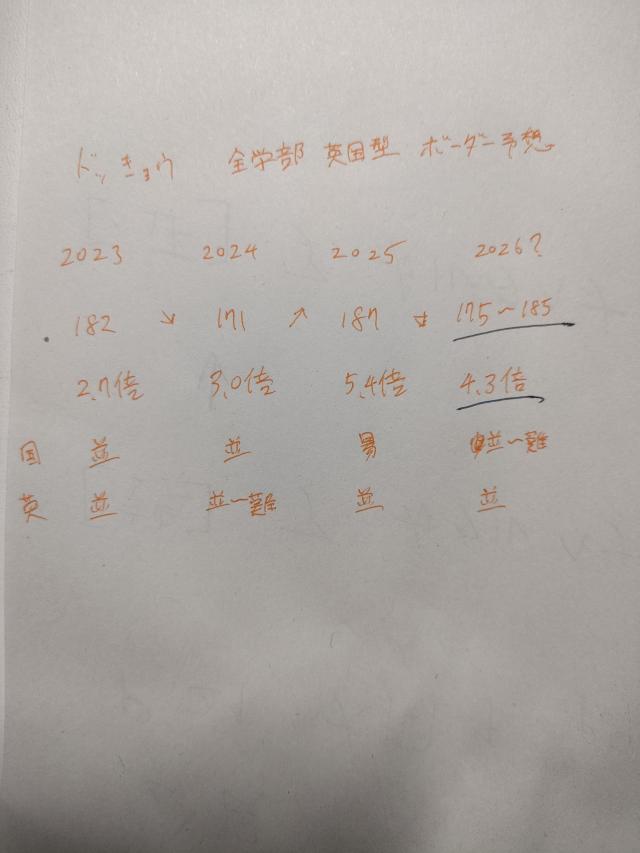 ドッキョウ 全学部 英国型 ボーダー予想
2023 2024 2025 2026?
182 ↘ 171 ↗ 187 ⇆ 175~185
2.7倍 3.0倍 5.4倍 4.3倍
国 並 並 易 並~難
英 並 並~難 並 並